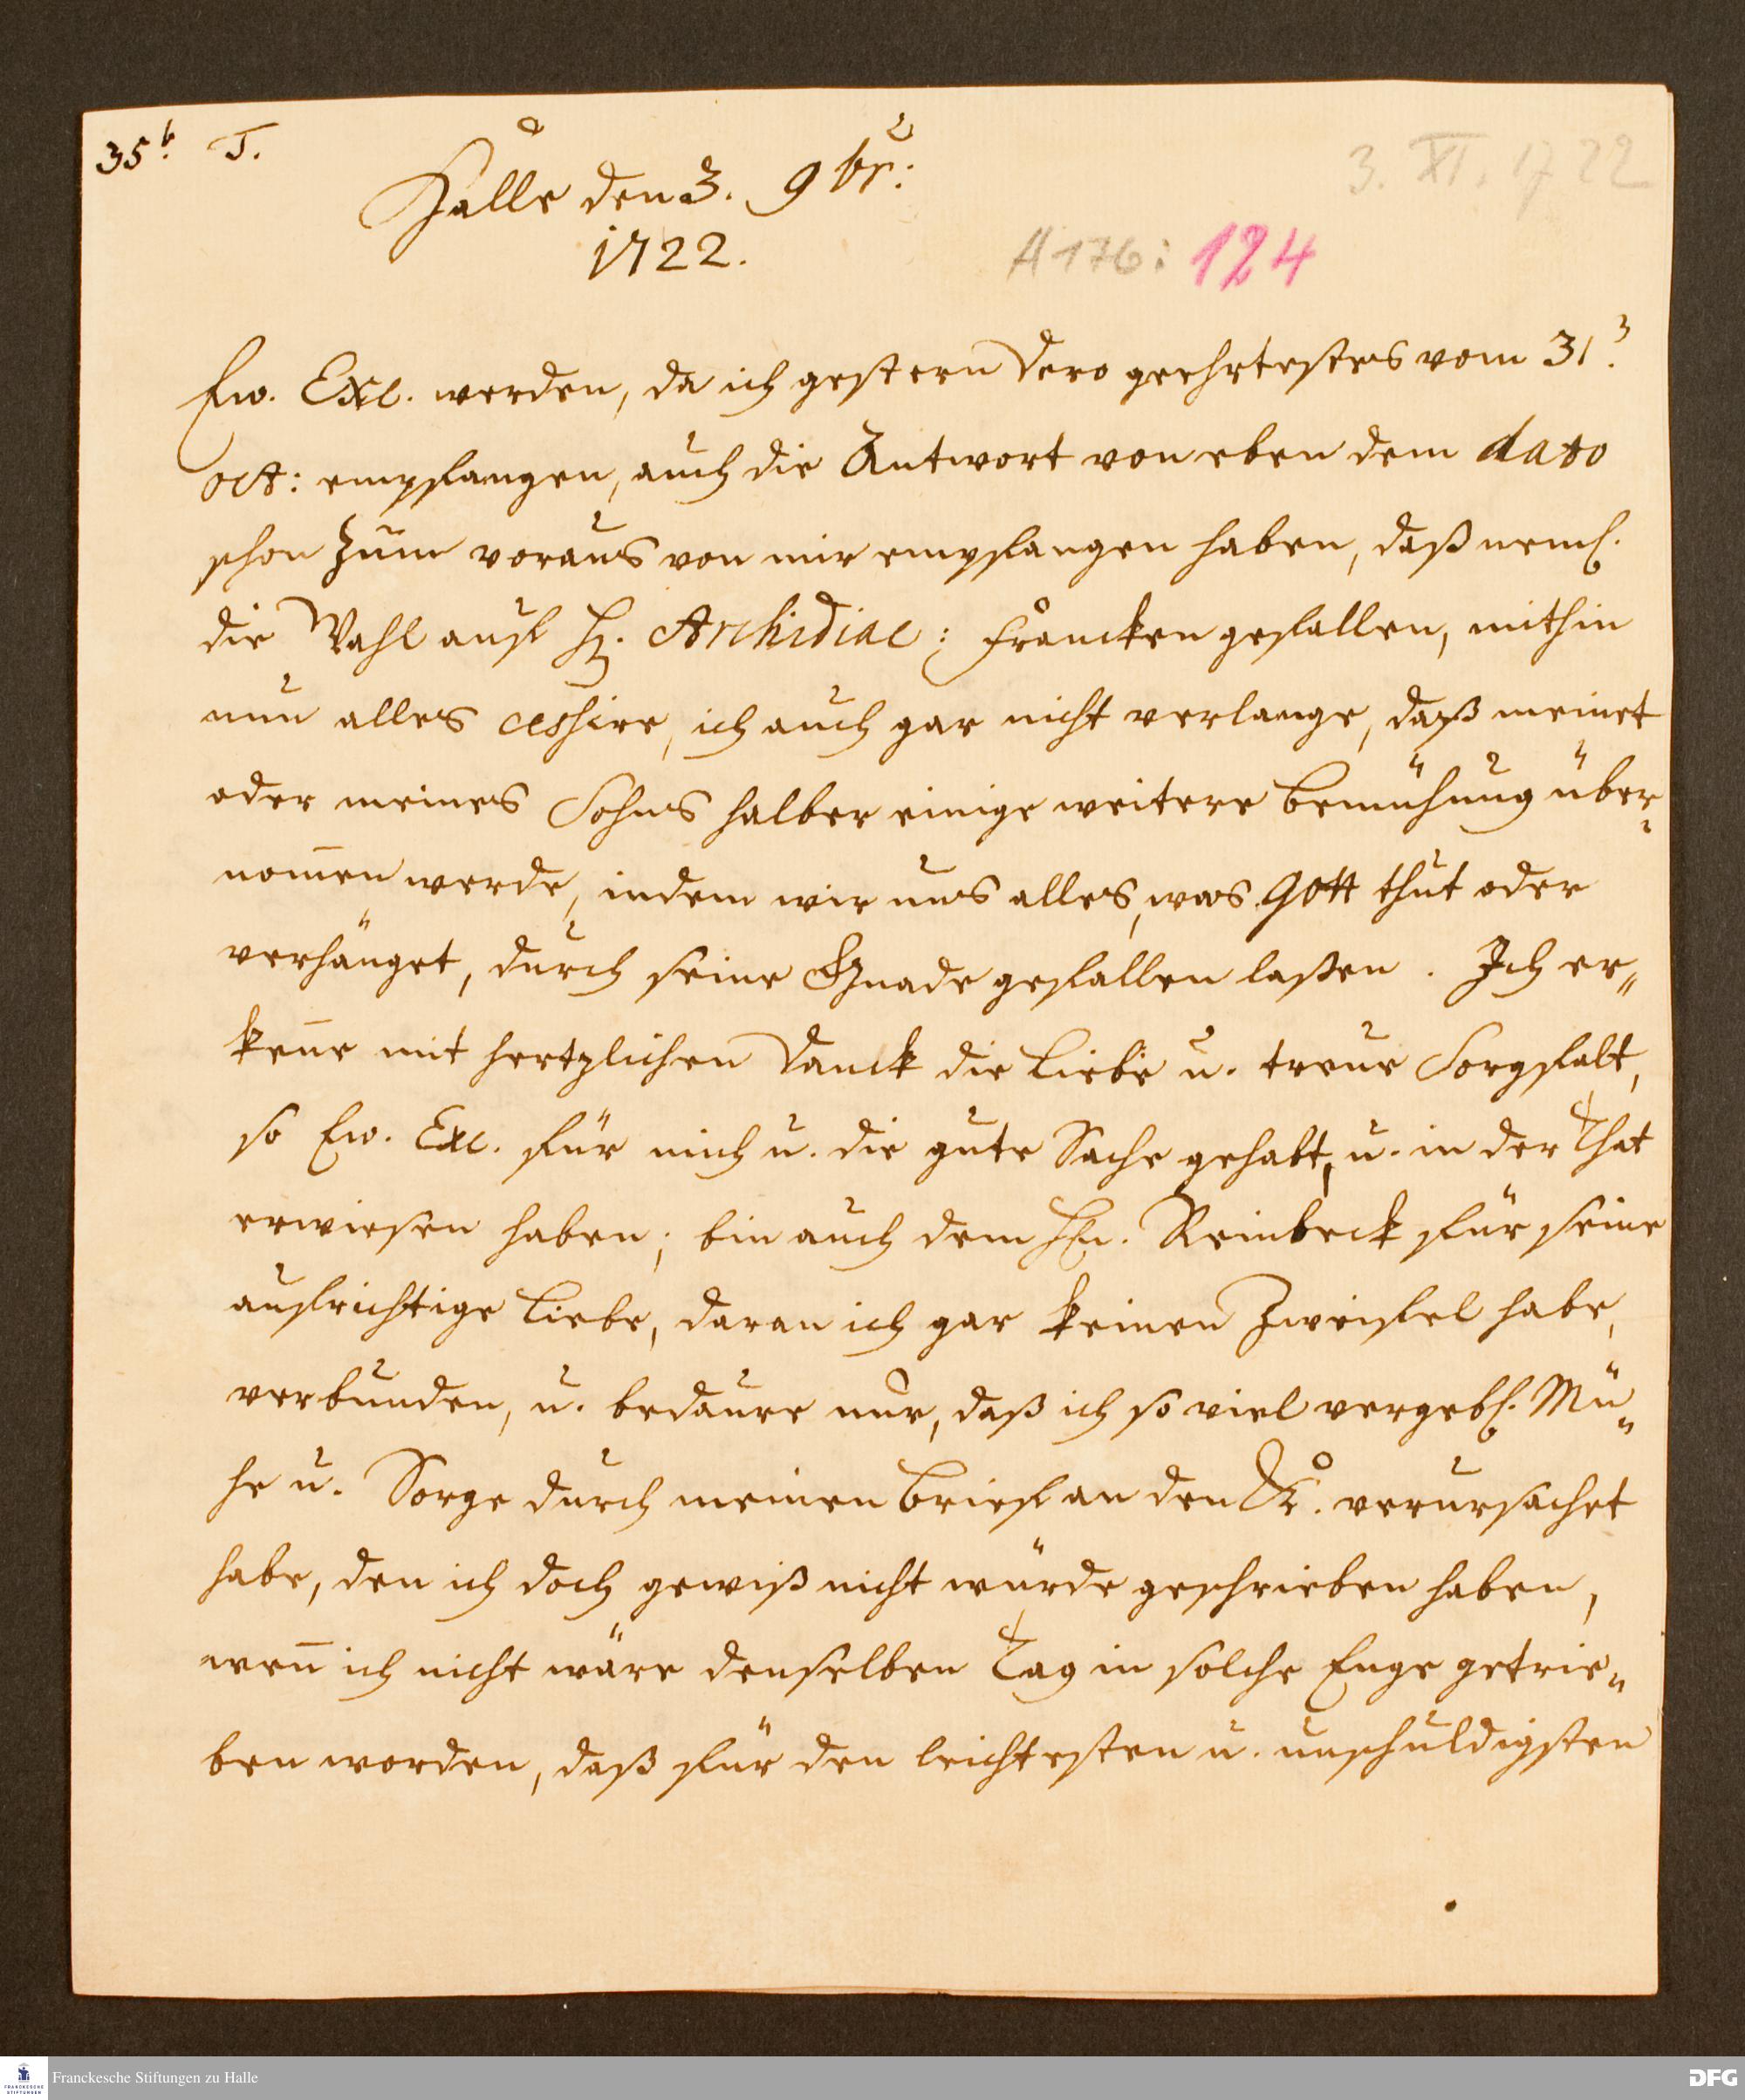 35b. J.
Halle den 3. 9br:
1722.
3. XI. 1722
A 176: 124
Ew. Exc. werden, da ich gestern Dero geehrtestes vom 31.
oct: empfangen, auch die Antwort von eben dem dato
schon zum voraus von mir empfangen haben, daß neml.
die Wahl auf H. Archidiac: Francken gefallen, mithin
nun alles cessire, ich auch gar nicht verlange, daß meinet
oder meines Sohns halber einige weitere Bemühung über-
nom̄en werde, indem wir uns alles, was Gott thut oder
verhänget, durch seine Gnade gefallen laßen. Ich er-
ken̄e mit hertzlichen Danck die Liebe u. treue Sorgfalt,
so Ew. Exc. für mich u. die gute Sache gehabt, u. in der That
erwiesen haben; bin auch dem Hn. Reinbeck für seine
aufrichtige Liebe, daran ich gar keinen Zweifel habe,
verbunden, u. bedaure nur, daß ich so viel vergebl. Mü-
he u. Sorge durch meinen Brief an den K. verursachet
habe, den ich doch gewiß nicht würde geschrieben haben,
wen̄ ich nicht wäre denselben Tag in solche Enge getrie-
ben worden, daß für den leichtesten u. unschuldigsten
Franckesche Stiftungen zu Halle
FRANCKESCHE
STIFTUNGEN
DFG